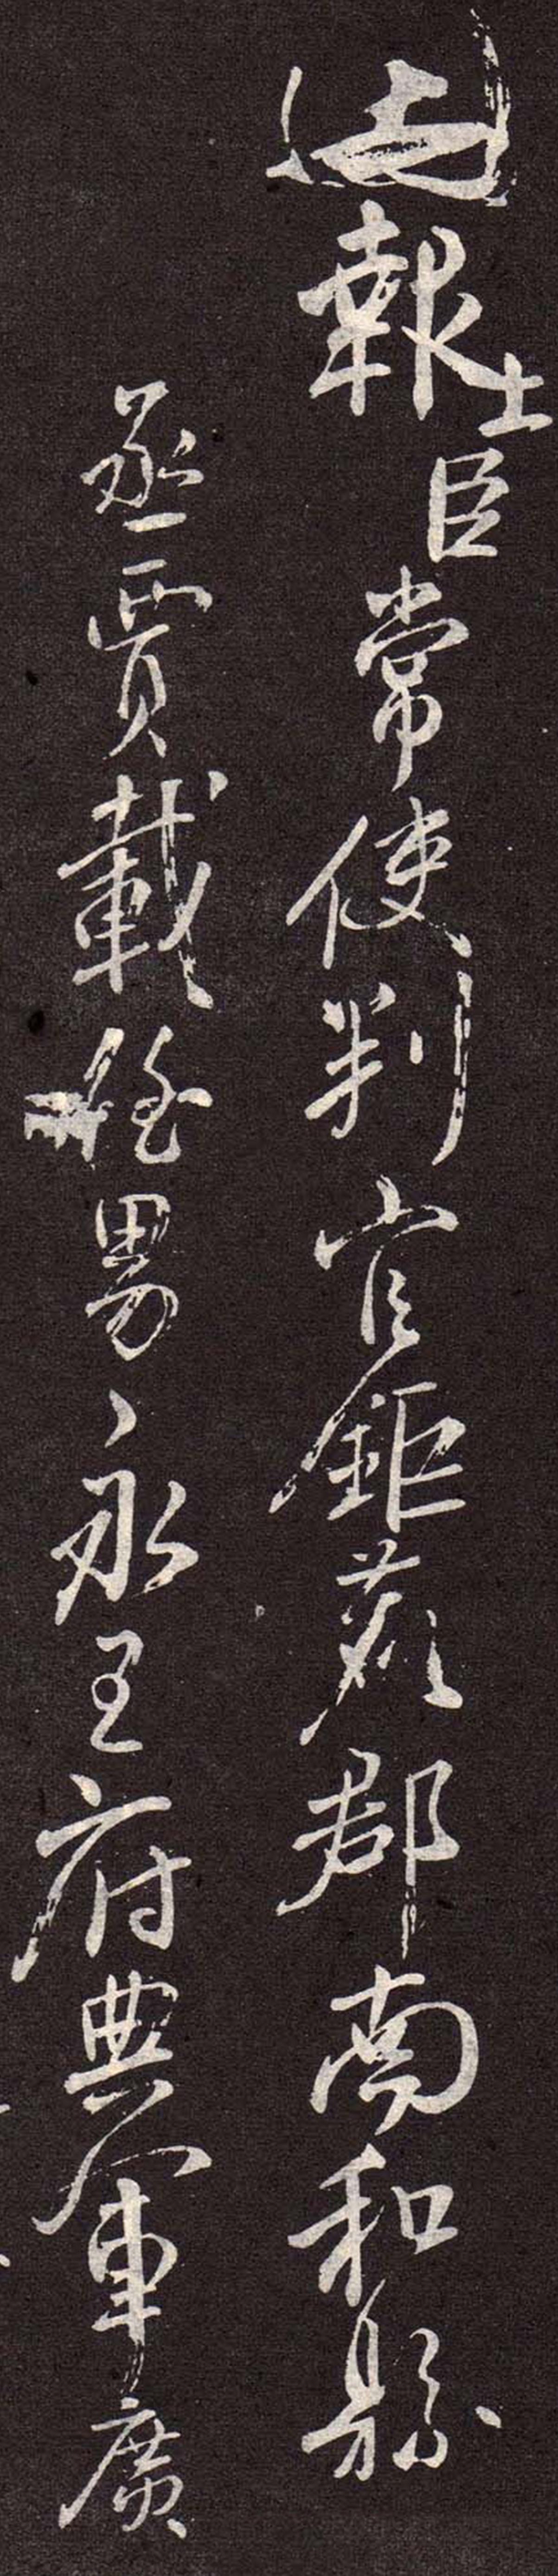 報士臣常使判官鉅鹿郡南和縣
丞賈載侄男永王府典軍廣